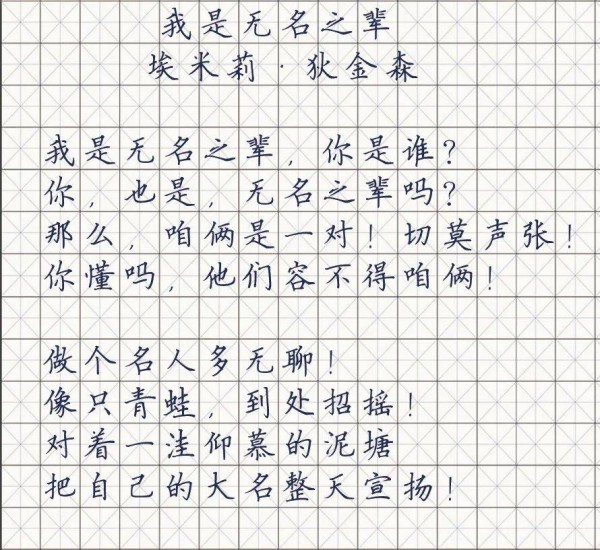 我是无名之辈
埃米莉·狄金森
我是无名之辈，你是谁？
你，也是，无名之辈吗？
那么，咱俩是一对！切莫声张！
你懂吗，他们容不得咱俩！
做个名人多无聊！
像只青蛙，到处招摇！
对着一洼仰慕的泥塘
把自己的大名整天宣扬！